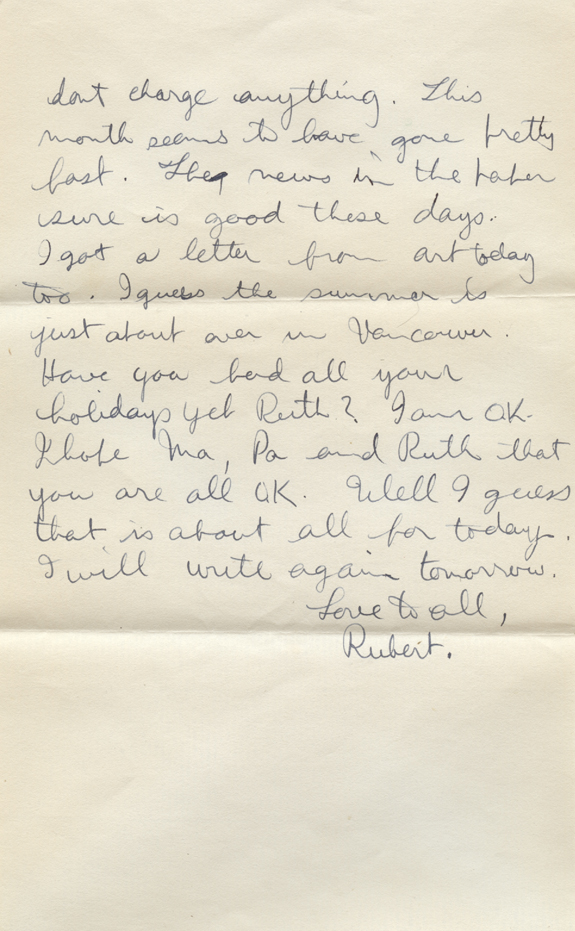 dont charge anything. This
month seems to have gone pretty
fast. The news in the paper
sure is good these days.
I got a letter from art today
too. I guess the summer is
just about over in Vancouver.
Have you had all your
holidays yet Ruth? I am OK.
I hope Ma, Pa and Ruth that
you are all OK. Well I guess
that is about all for today.
I will write again tomorrow.
Love to all,
Rubert.